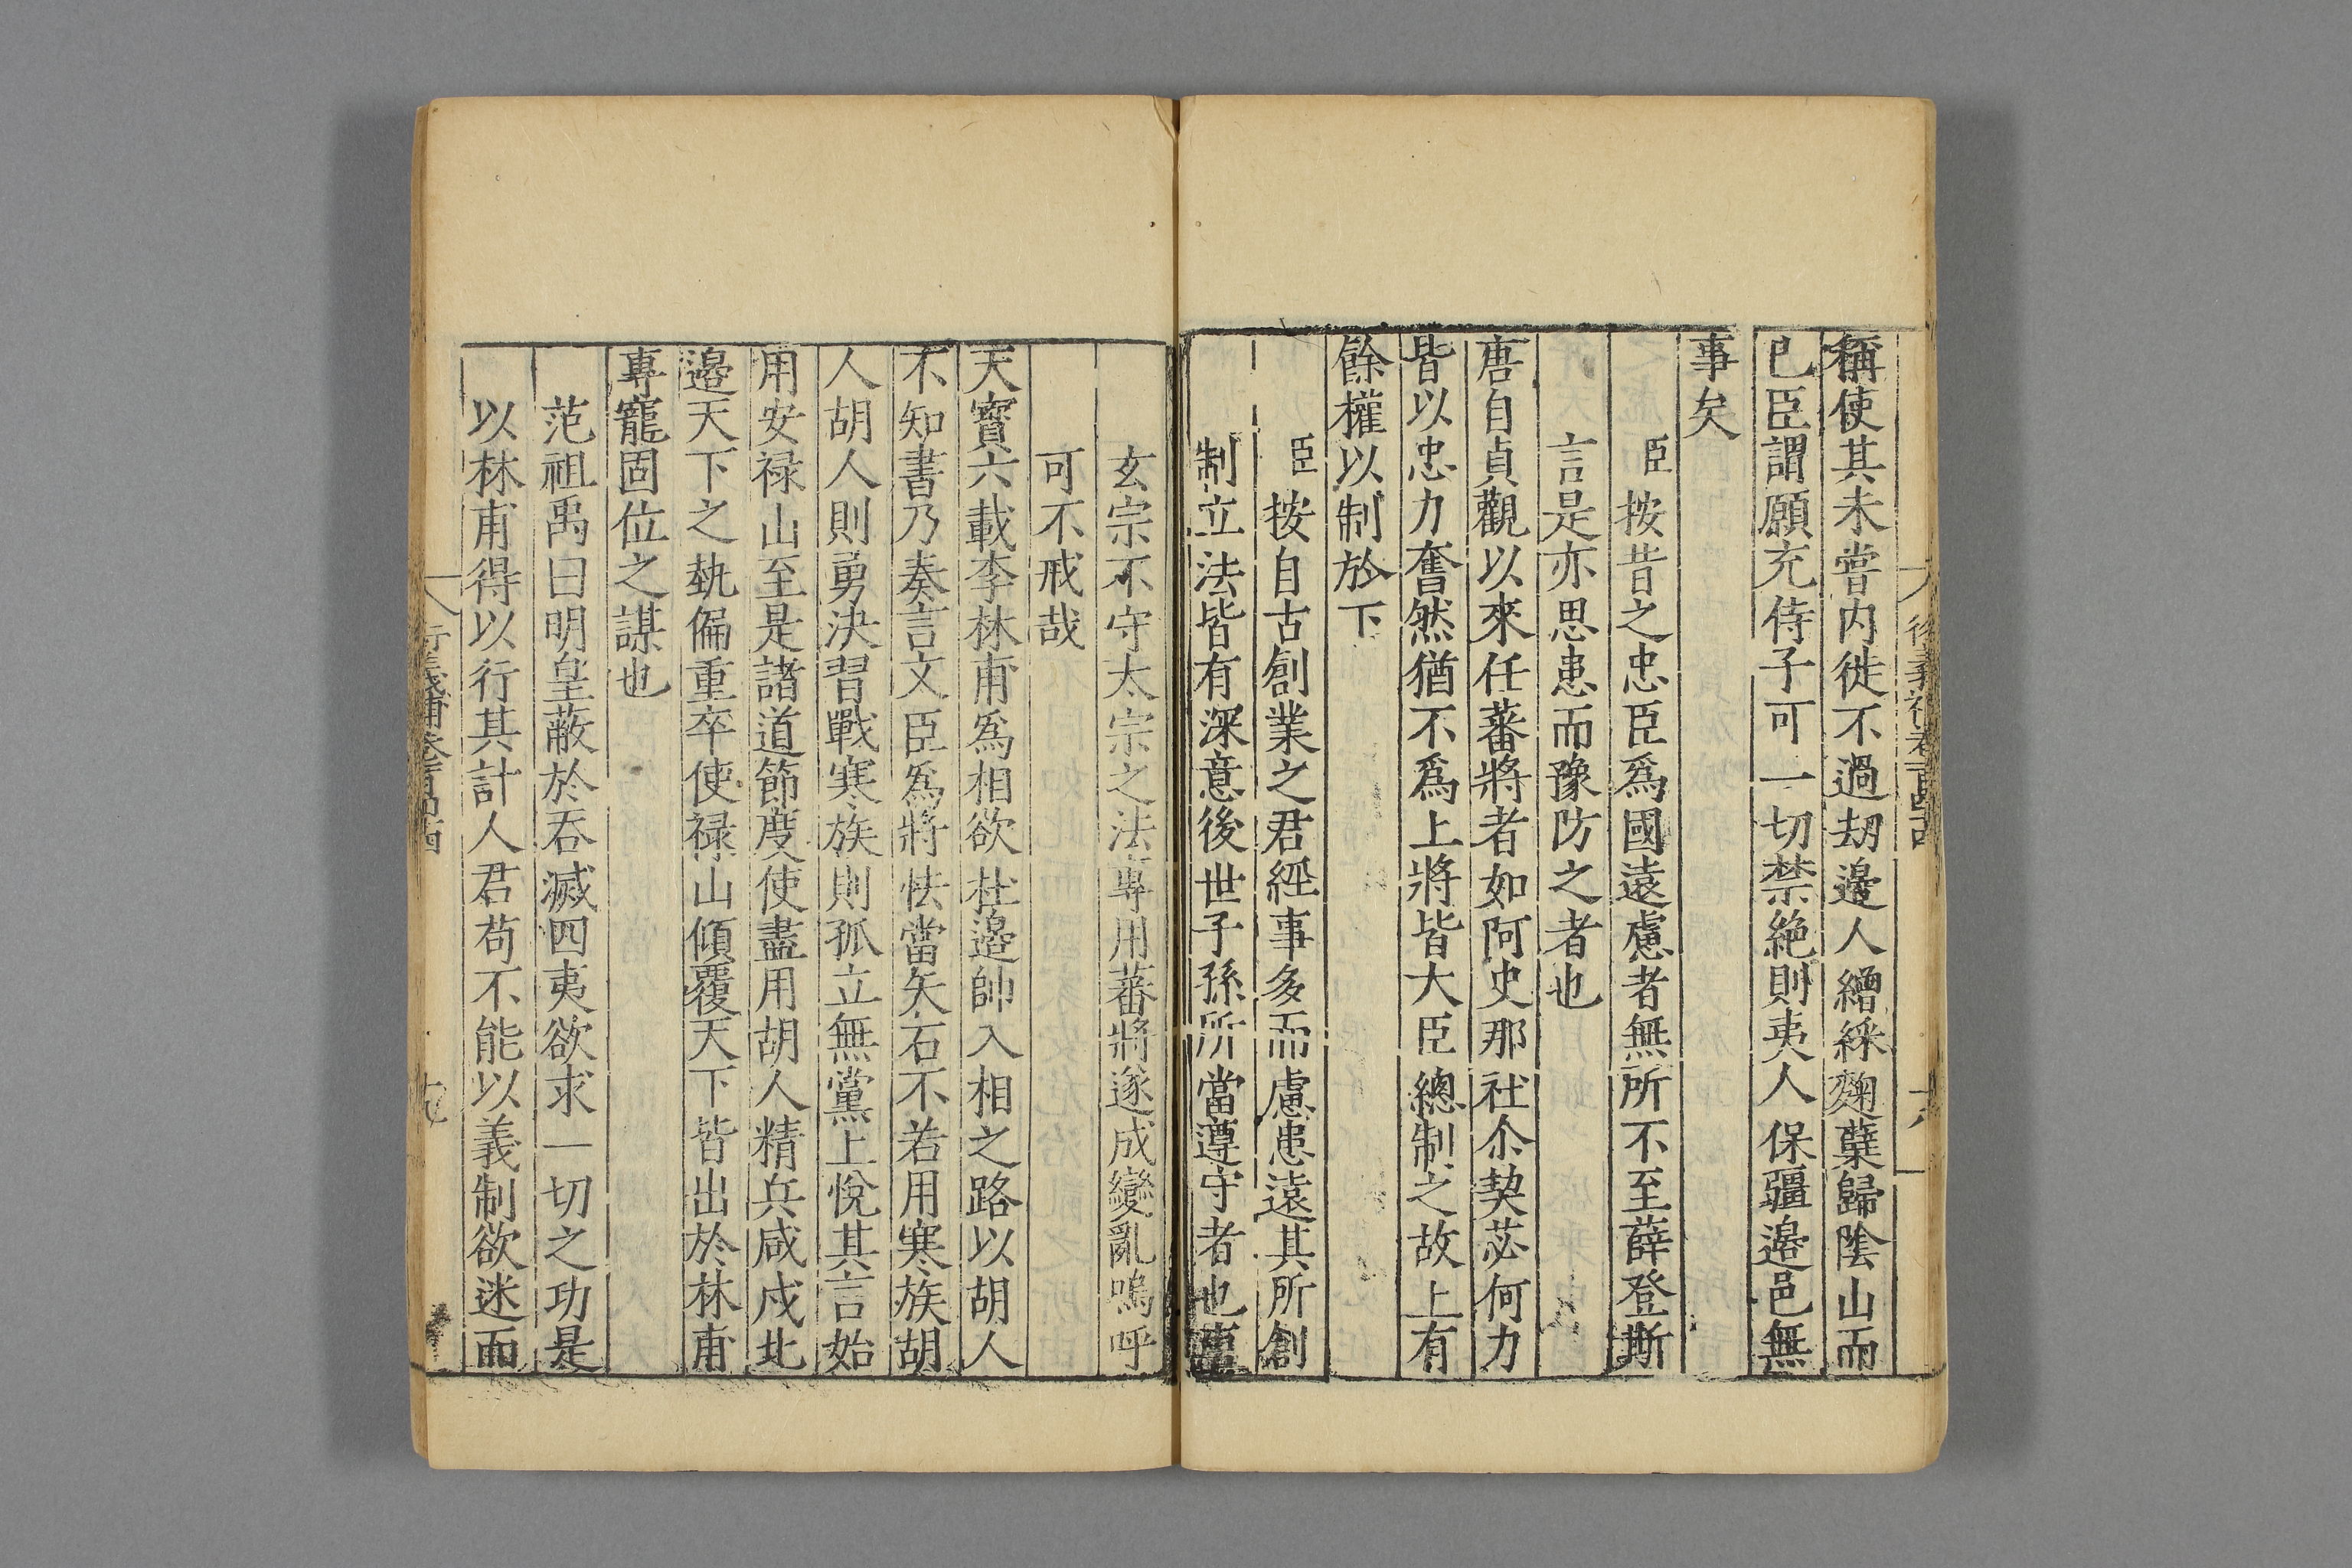 稱使其未嘗内徙不過刼邊人繒綵麴蘖歸陰山而
已臣謂願充侍子可一切禁絶則夷人保疆邉邑無
事矣
臣按昔之忠臣爲國遠慮者無所不至薛登斯
言是亦思患而豫防之者也
唐自貞觀以來任蕃將者如阿史那社尒契苾何力
皆以忠力奮然猶不爲上將皆大臣總制之故上有
餘權以制於下
臣按自古創業之君經事多而慮患遠其所創
制立法皆有深意後世子孫所當遵守者也
玄宗不守太宗之法專用蕃將遂成變亂嗚呼
可不戒哉
天寳六載李林甫爲相欲杜邉帥入相之路以胡人
不知書乃奏言文臣爲將怯當矢石不若用寒族胡
人胡人則勇決習戰寒族則孤立無黨上悅其言始
用安禄山至是諸道節度使盡用胡人精兵咸戍北
邉天下之埶偏重卒使禄山傾覆天下皆出於林甫
專寵固位之謀也
范祖禹曰明皇蔽於吞滅四夷欲求一切之功是
以林甫得以行其計人君苟不能以義制欲迷而